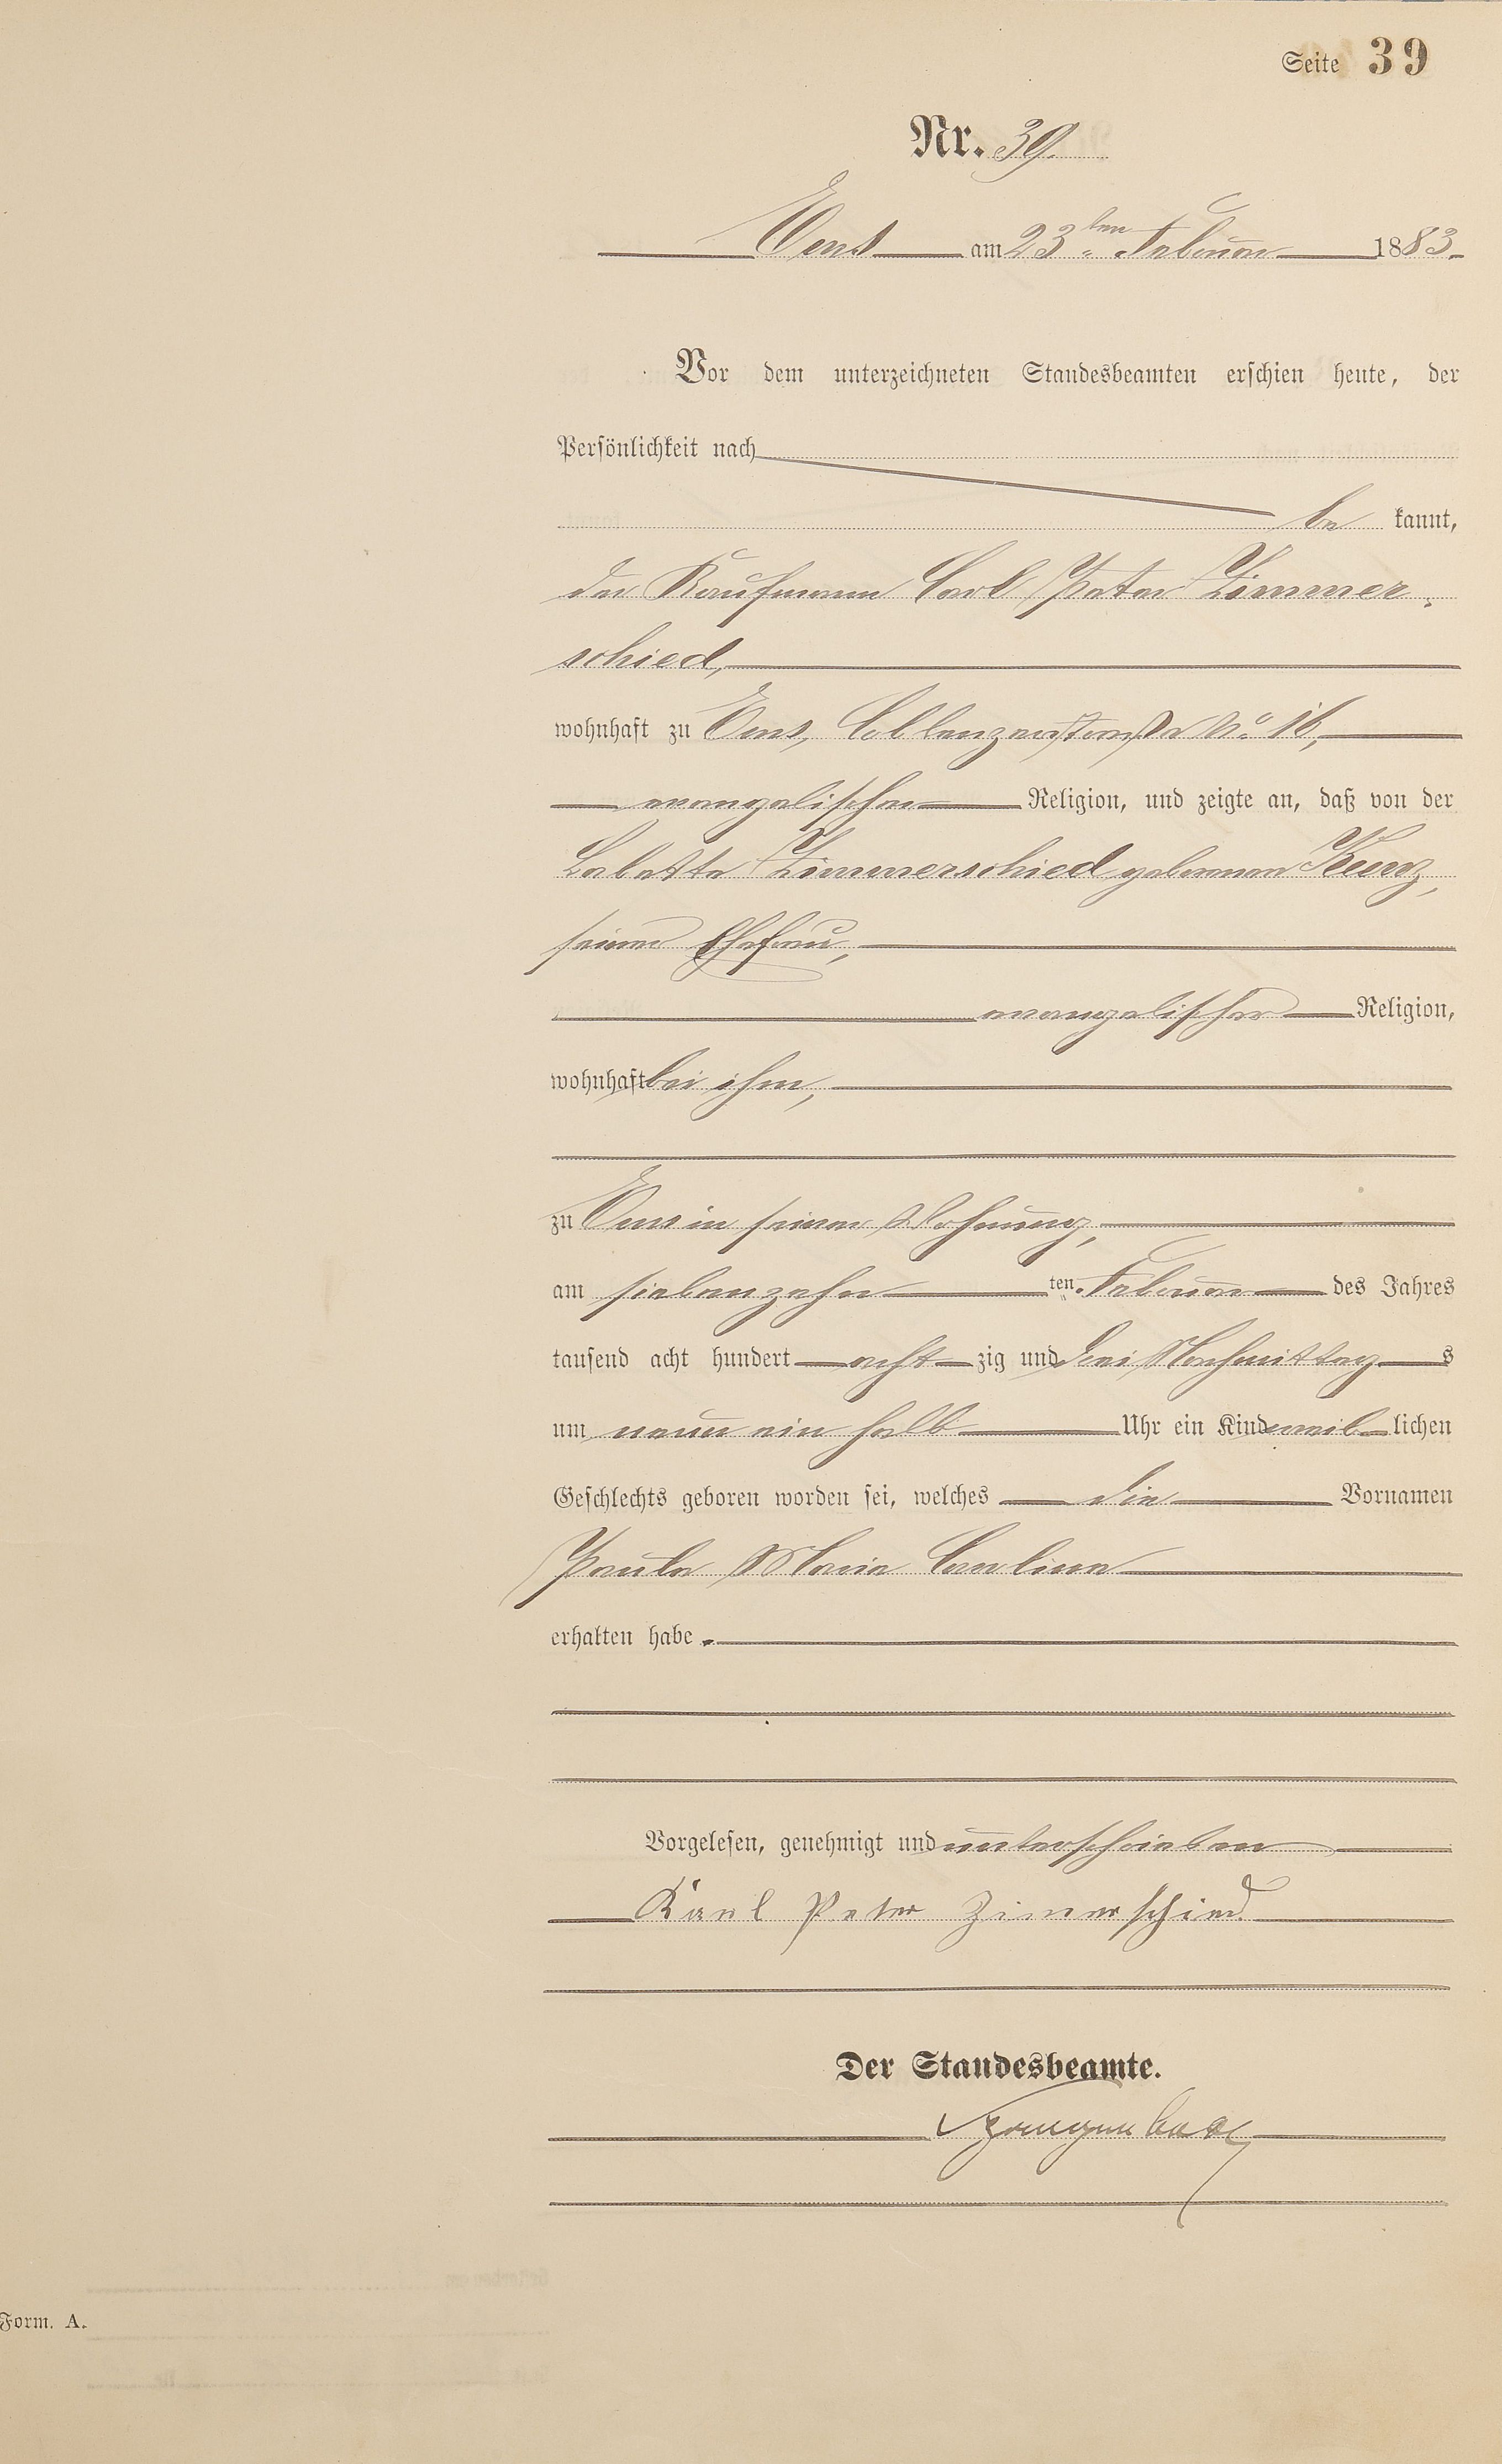 Seite 39
Nr. 39.
Ems am 23ten Februar 1883.
Vor dem unterzeichneten Standesbeamten erschien heute, der
Persönlichkeit nach
be kannt,
der Kaufmann Carl Peter Zimmer-
schied,
wohnhaft zu Ems, Coblenzerstraße No. 16,
evangelischer Religion, und zeigte an, daß von der
Babette Zimmerschied geborenen Kurz,
seiner Ehefrau,
evangelischer Religion,
wohnhaft bei ihm,
zu Ems in seiner Wohnung,
am siebenzehn ten Februar des Jahres
tausend acht hundert acht zig und drei Nachmittag s
um neun ein halb Uhr ein Kind weib lichen
Geschlechts geboren worden sei, welches die Vornamen
Paula Maria Caroline
erhalten habe.
Vorgelesen, genehmigt und unterschrieben
Karl Peter Zimerschied
Der Standesbeamte.
Form. A.